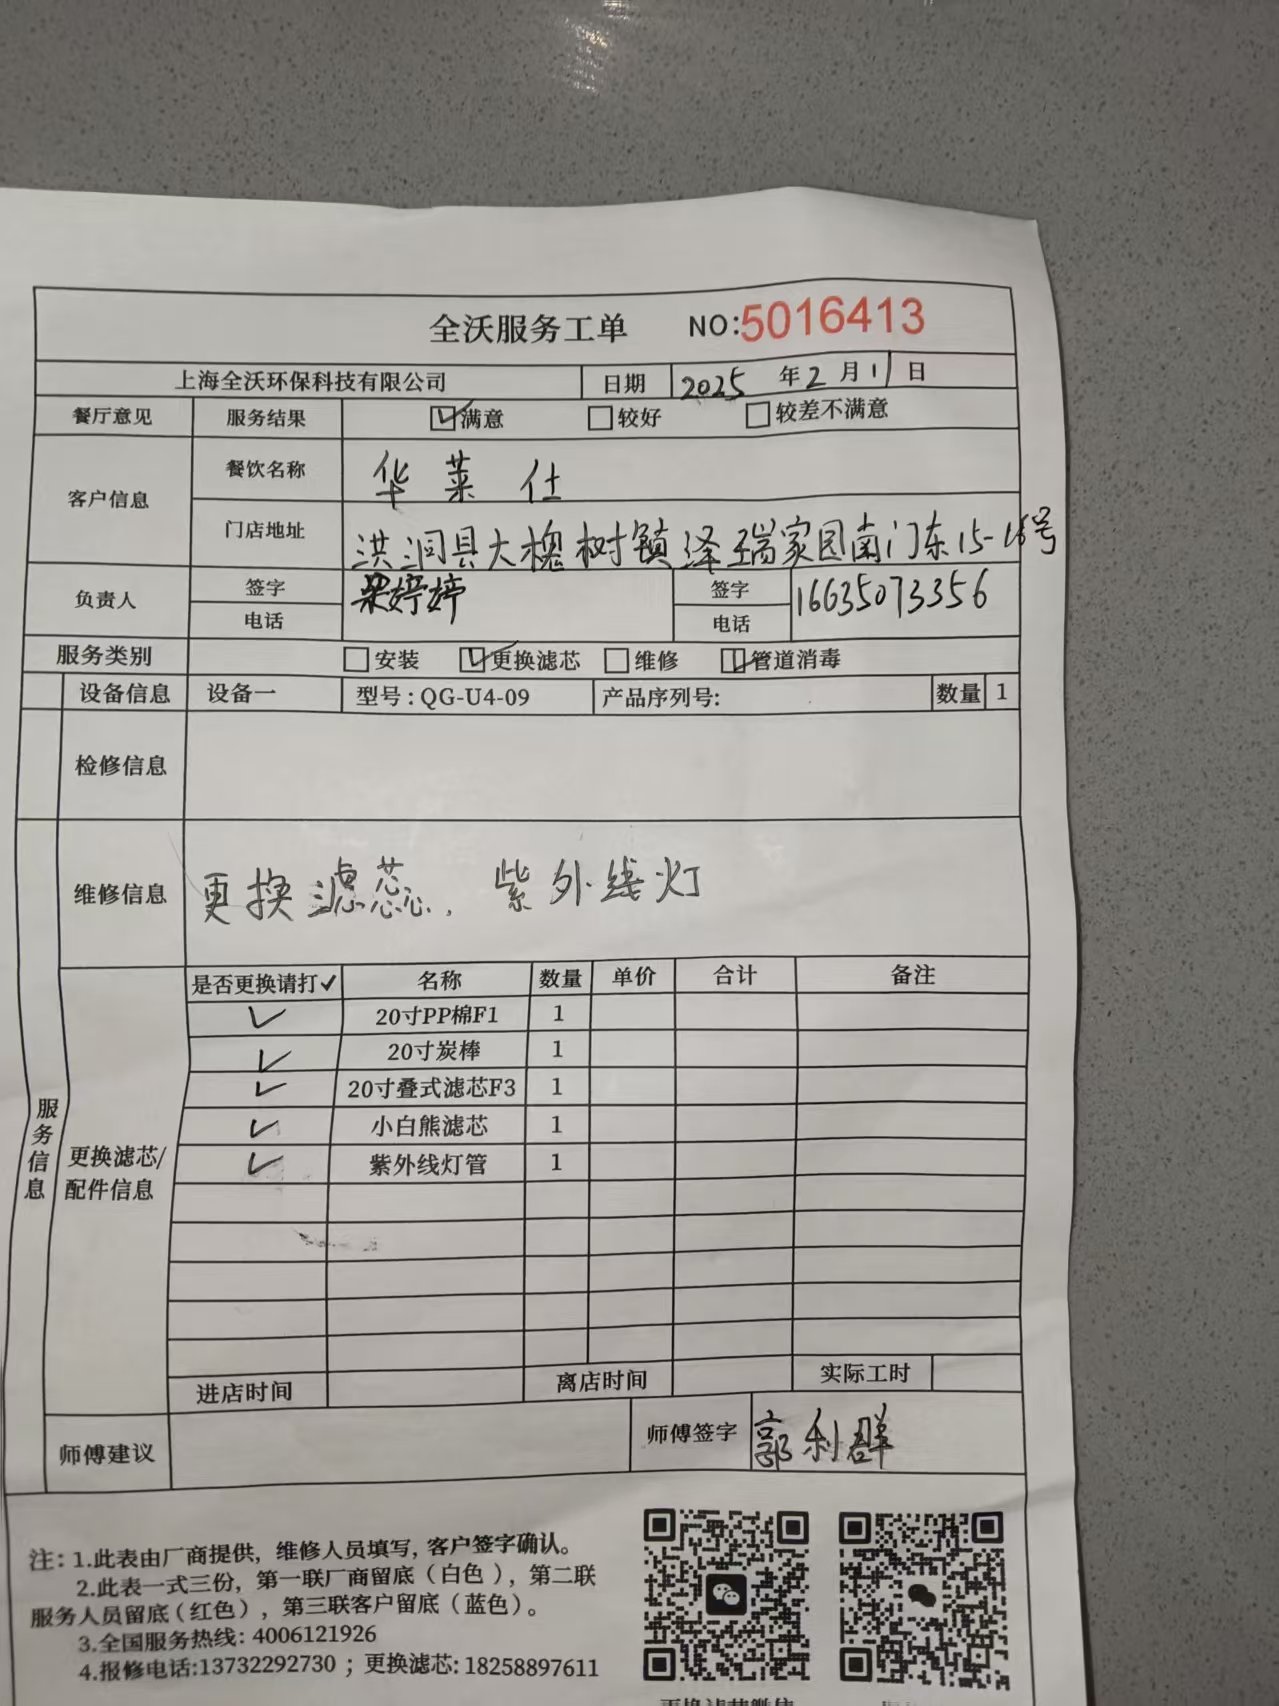 全沃服务工单 NO:5016413
上海全沃环保科技有限公司 日期 2025 年 2 月 11 日
餐厅意见 服务结果 ☑满意 □较好 □较差不满意
客户信息 餐饮名称 华莱仕
门店地址 洪洞县大槐树镇泽瑞家园南门东15-16号
负责人 签字 梁婷婷 签字 16635073356
电话 电话
服务类别 □安装 ☑更换滤芯 □维修 ☑管道消毒
设备信息 设备一 型号:QG-U4-09 产品序列号: 数量 1
检修信息
维修信息 更换滤芯,紫外线灯
服务信息
更换滤芯/
配件信息
是否更换请打✓ 名称 数量 单价 合计 备注
✓ 20寸PP棉F1 1
✓ 20寸炭棒 1
✓ 20寸叠式滤芯F3 1
✓ 小白熊滤芯 1
✓ 紫外线灯管 1
进店时间 离店时间 实际工时
师傅建议 师傅签字 郭利群
注:1.此表由厂商提供,维修人员填写,客户签字确认。
2.此表一式三份,第一联厂商留底(白色),第二联
服务人员留底(红色),第三联客户留底(蓝色)。
3.全国服务热线:4006121926
4.报修电话:13732292730;更换滤芯:18258897611